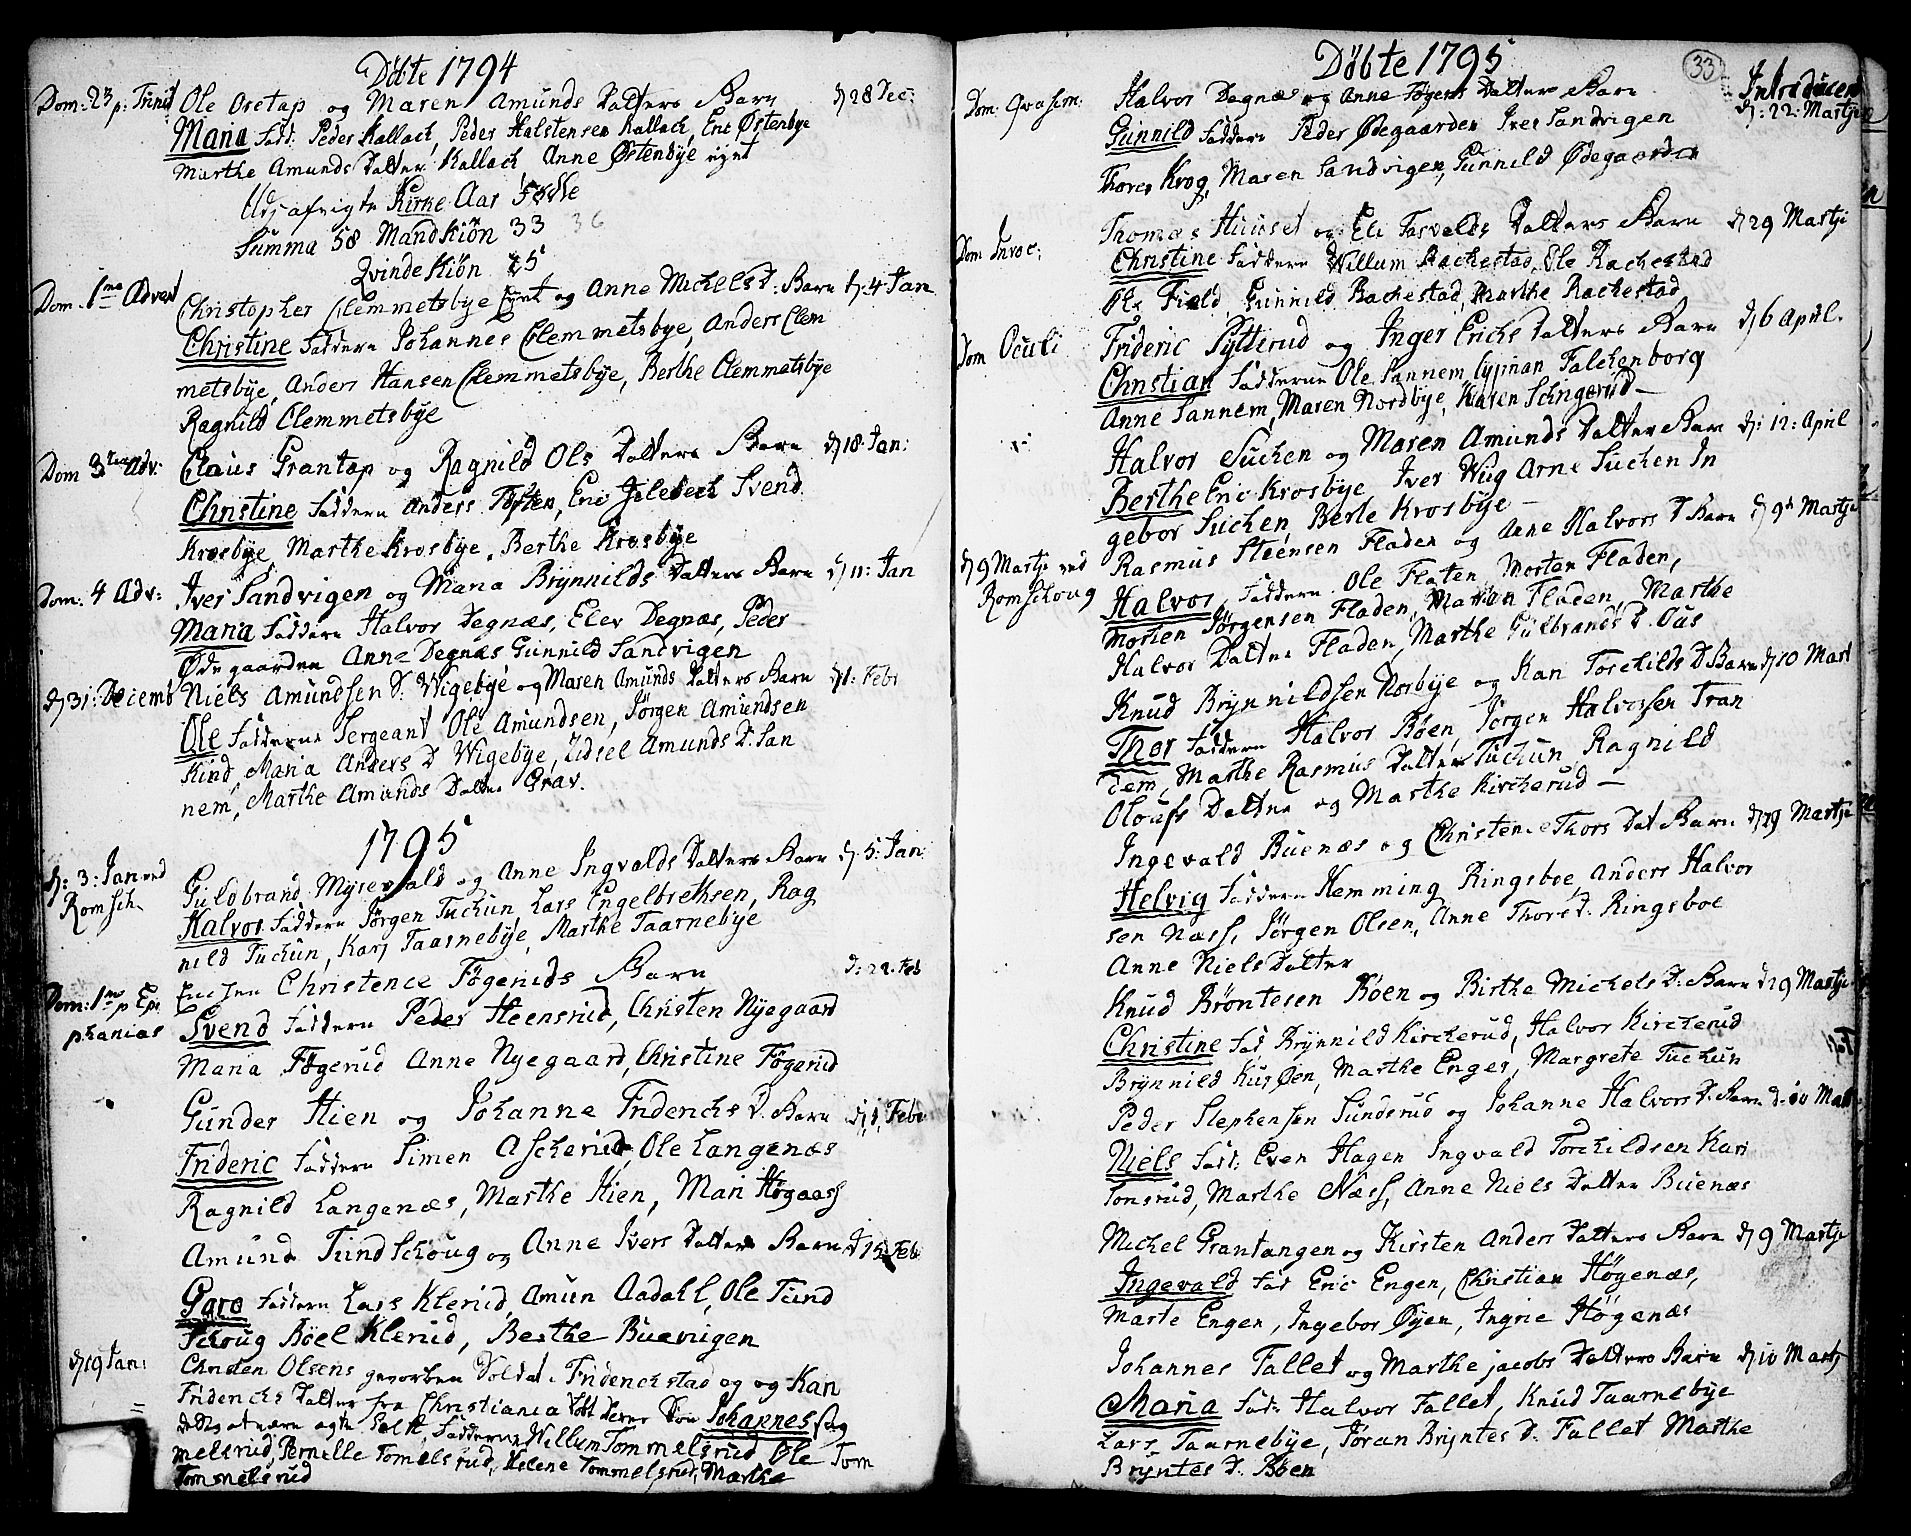 Döbte 1794
Dom: 23 p: Trinit Ole Oretap og Maren Amunds Datters Barn d 28 Dec:
Maria Fad. Peder Kallach, Peder Halstensen Kallach, Eric Østenbye
Marthe Amunds Datter Kallach Anne Østenbye
Udj afvigte Kirke Aar Fødde
Summa 58 Mandkiön 33 36
Qvindekiön 25
Dom. 1me Advent Christopher Clemmetsbye og Anne Michels D: Barn d: 4 Jan
Christine Faddern Johannes Clemmetsbye, Anders Clem
metsbye, Anders Hansen Clemmetsbye, Berthe Clemmetsbye
Ragnild Clemmetsbye
Dom 3 Adv: Claus Grantap og Ragnild Ols Datters Barn d 18 Jan:
Christine Faddern Anders Toften, Eric Svend
Krosbye, Marthe Krosbye, Berthe Krosbye
Dom: 4 Adv: Iver Sandvigen og Maria Brynnilds Datters Barn d 11: Jan
Maria Faddern Halvor Degnæs, Elev Degnæs, Peder
Ødegaarden Anne Degnæs Gunnild Sandvigen
d 31: Decemb Niels Amundsen S. Wigebye og Maren Amunds Datters Barn d 1: Febr
Ole Fadderne Sergeant Ole Amundsen, Jörgen Amundsen
Kind, Maria Anders D Wigebye, Zidsel Amunds D. San
nem, Marthe Amunds Datter Grav.
1795
d: 3: Jan ved Guldbrand Myrevold og Anne Ingvalds Datters Barn d: 5: Jan
Romsch. Halvor Faddern Jörgen Tuchun, Lars Engelbrektsen, Rag
nild Tuchun, Kari Taarnebye, Marthe Taarnebye
Enchen Christence Fögeruds Barn d: 22. Feb
Dom: 1me p Epi Svend Faddern Peder Heensrud, Christen Nyegaard
phanias Maria Fögerud Anne Nyegaard, Christine Fögerud
Gunder Hien og Johanne Friderichs D. Barn d 1 Febr
Frideric Faddern Simen Ascherud, Ole Langenæs
Ragnild Langenæs, Marthe Hien, Mari Högaas
Amund Tundschoug og Anne Ivers Datters Barn d 15 Feb
Goro Faddern Lars Klerud, Amun Aadahl, Ole Tund
schoug Böel Klerud, Berthe Buevigen
d 19 Jan: Christen Olsens gevorben Soldat i Friderichstad og og Kari
Friderichs Datter fra Christiania Johannes
Fadderne Willum Tommelsrud Ole Tom
melsrud, Pernelle Tomelsrud, Helene Tommelsrud, Marthe
Tommelsrud
Döbte 1795
33
Introducered
Dom. Qvasim. Halvor Degnæs og Anne Fögers Datters Barn d: 22. Martji
Gunnild Faddere Peder Ødegaarden Iver Sandvigen
Thorer Krog, Maren Sandvigen, Gunnild Ødegaarden
Dom Invoc: Thomas Huuset og Eli Tasvalds Datters Barn d 29 Martji
Christine Faddern Willum Rachestad, Ole Rachestad
Ole Field, Gunnild Rachestad, Marthe Rachestad
Dom Oculi Frideric Sytterud og Inger Erichs Datters Barn d 6 April.
Christian Fadderne Ole Sannem Falchenborg
Anne Sannem, Maren Nordbye, Karen Schngerud
Halvor Suchen og Maren Amunds Datter Barn d: 12: April
Berthe Eric Krosbye Iver Wiig Arne Suchen In
gebor Suchen, Berte Krosbye
d 9 Martji ved Rasmus Steensen Fladen og Anne Halvors D Barn d 9d Martji
Romschoug Halvor, Faddern. Ole Flaten, Morten Fladen,
Morten Jörgensen Fladen, Marian Fladen, Marthe
Halvor Datter Fladen, Marthe Gulbrands D. Ous
Knud Brynnildsen Norbye og Kari Torchilds D Barn d 10 Mart
Thor Faddern Halvor Böen, Jörgen Halvorsen Tran
dem, Marthe Rasmus Datter Tuchun, Ragnild
Oloufs Datter og Marthe Kircherud
Ingevald Buenæs og Christence Thors Dat Barn d 19 Martji
Helvig Faddern Hemming Ringsboe, Anders Halvor
sen Næss, Jörgen Olsen, Anne Thors D. Ringsboe
Anne Niels Datter
Knud Bröntesen Böen og Birthe Michels D: Barn d 9 Martji
Christine Fad Brynnild Kircherud, Halvor Kircherud
Brynnild Kusøen, Marthe Enger, Margrete Tuchun
Peder Stephensen Sundsrud og Johanne Halvors D. Barn d. 10 Mart
Niels Fadd: Even Hagen Ingvald Torchildsen Kari
Tonsrud, Marthe Næss, Anne Niels Datter Buenæs
Michel Grantangen og Kirsten Anders Datters Barn d 9 Martji
Ingevald Fad Eric Engen, Christian Högenæs,
Marte Engen, Ingebor Øyen, Ingrie Högenæs
Johannes Fallet og Marthe jacobs Datters Barn d 10 Martj
Maria Fad: Halvor Fallet, Knud Taarnebye
Lars Taarnebye, Jöran Bryntes D. Fallet Marthe
Bryntes D. Böen